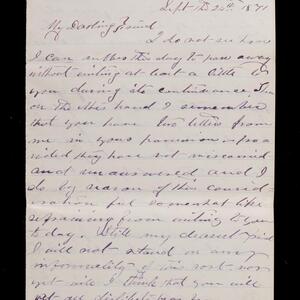 Sept the 20th 1871
My Darling Friend
I do not see how
I can suffer this day to pass away
without writing at least a little to
you during its continuance. Then
on the other hand I remember
that you have two letters from
me in your possession – pro-
vided they have not miscarried
and unanswered and I
do by reason of this consid-
eration feel somewhat like
refraining from writing to you
to day. Still my dearest friend
I will not stand on any
informality of this sort nor
yet will I think that you will